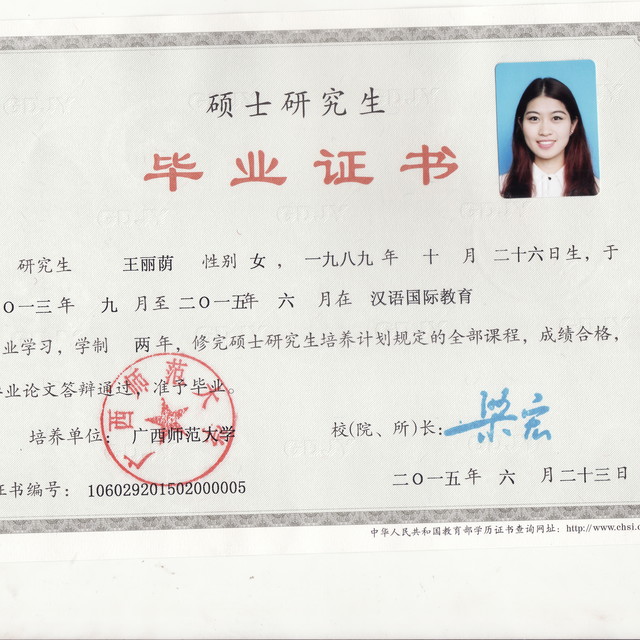 硕士研究生
毕业证书
研究生 王丽荫 性别 女，一九八九年 十 月 二十六日生，于
〇一三年 九 月至二〇一五年 六 月在 汉语国际教育
业学习，学制 两年，修完硕士研究生培养计划规定的全部课程，成绩合格，
毕业论文答辩通过，准予毕业。
培养单位：广西师范大学
校(院、所)长：梁宏
证书编号：106029201502000005
二〇一五年 六 月二十三日
广西师范大学
中华人民共和国教育部学历证书查询网址：http://www.chsi.c